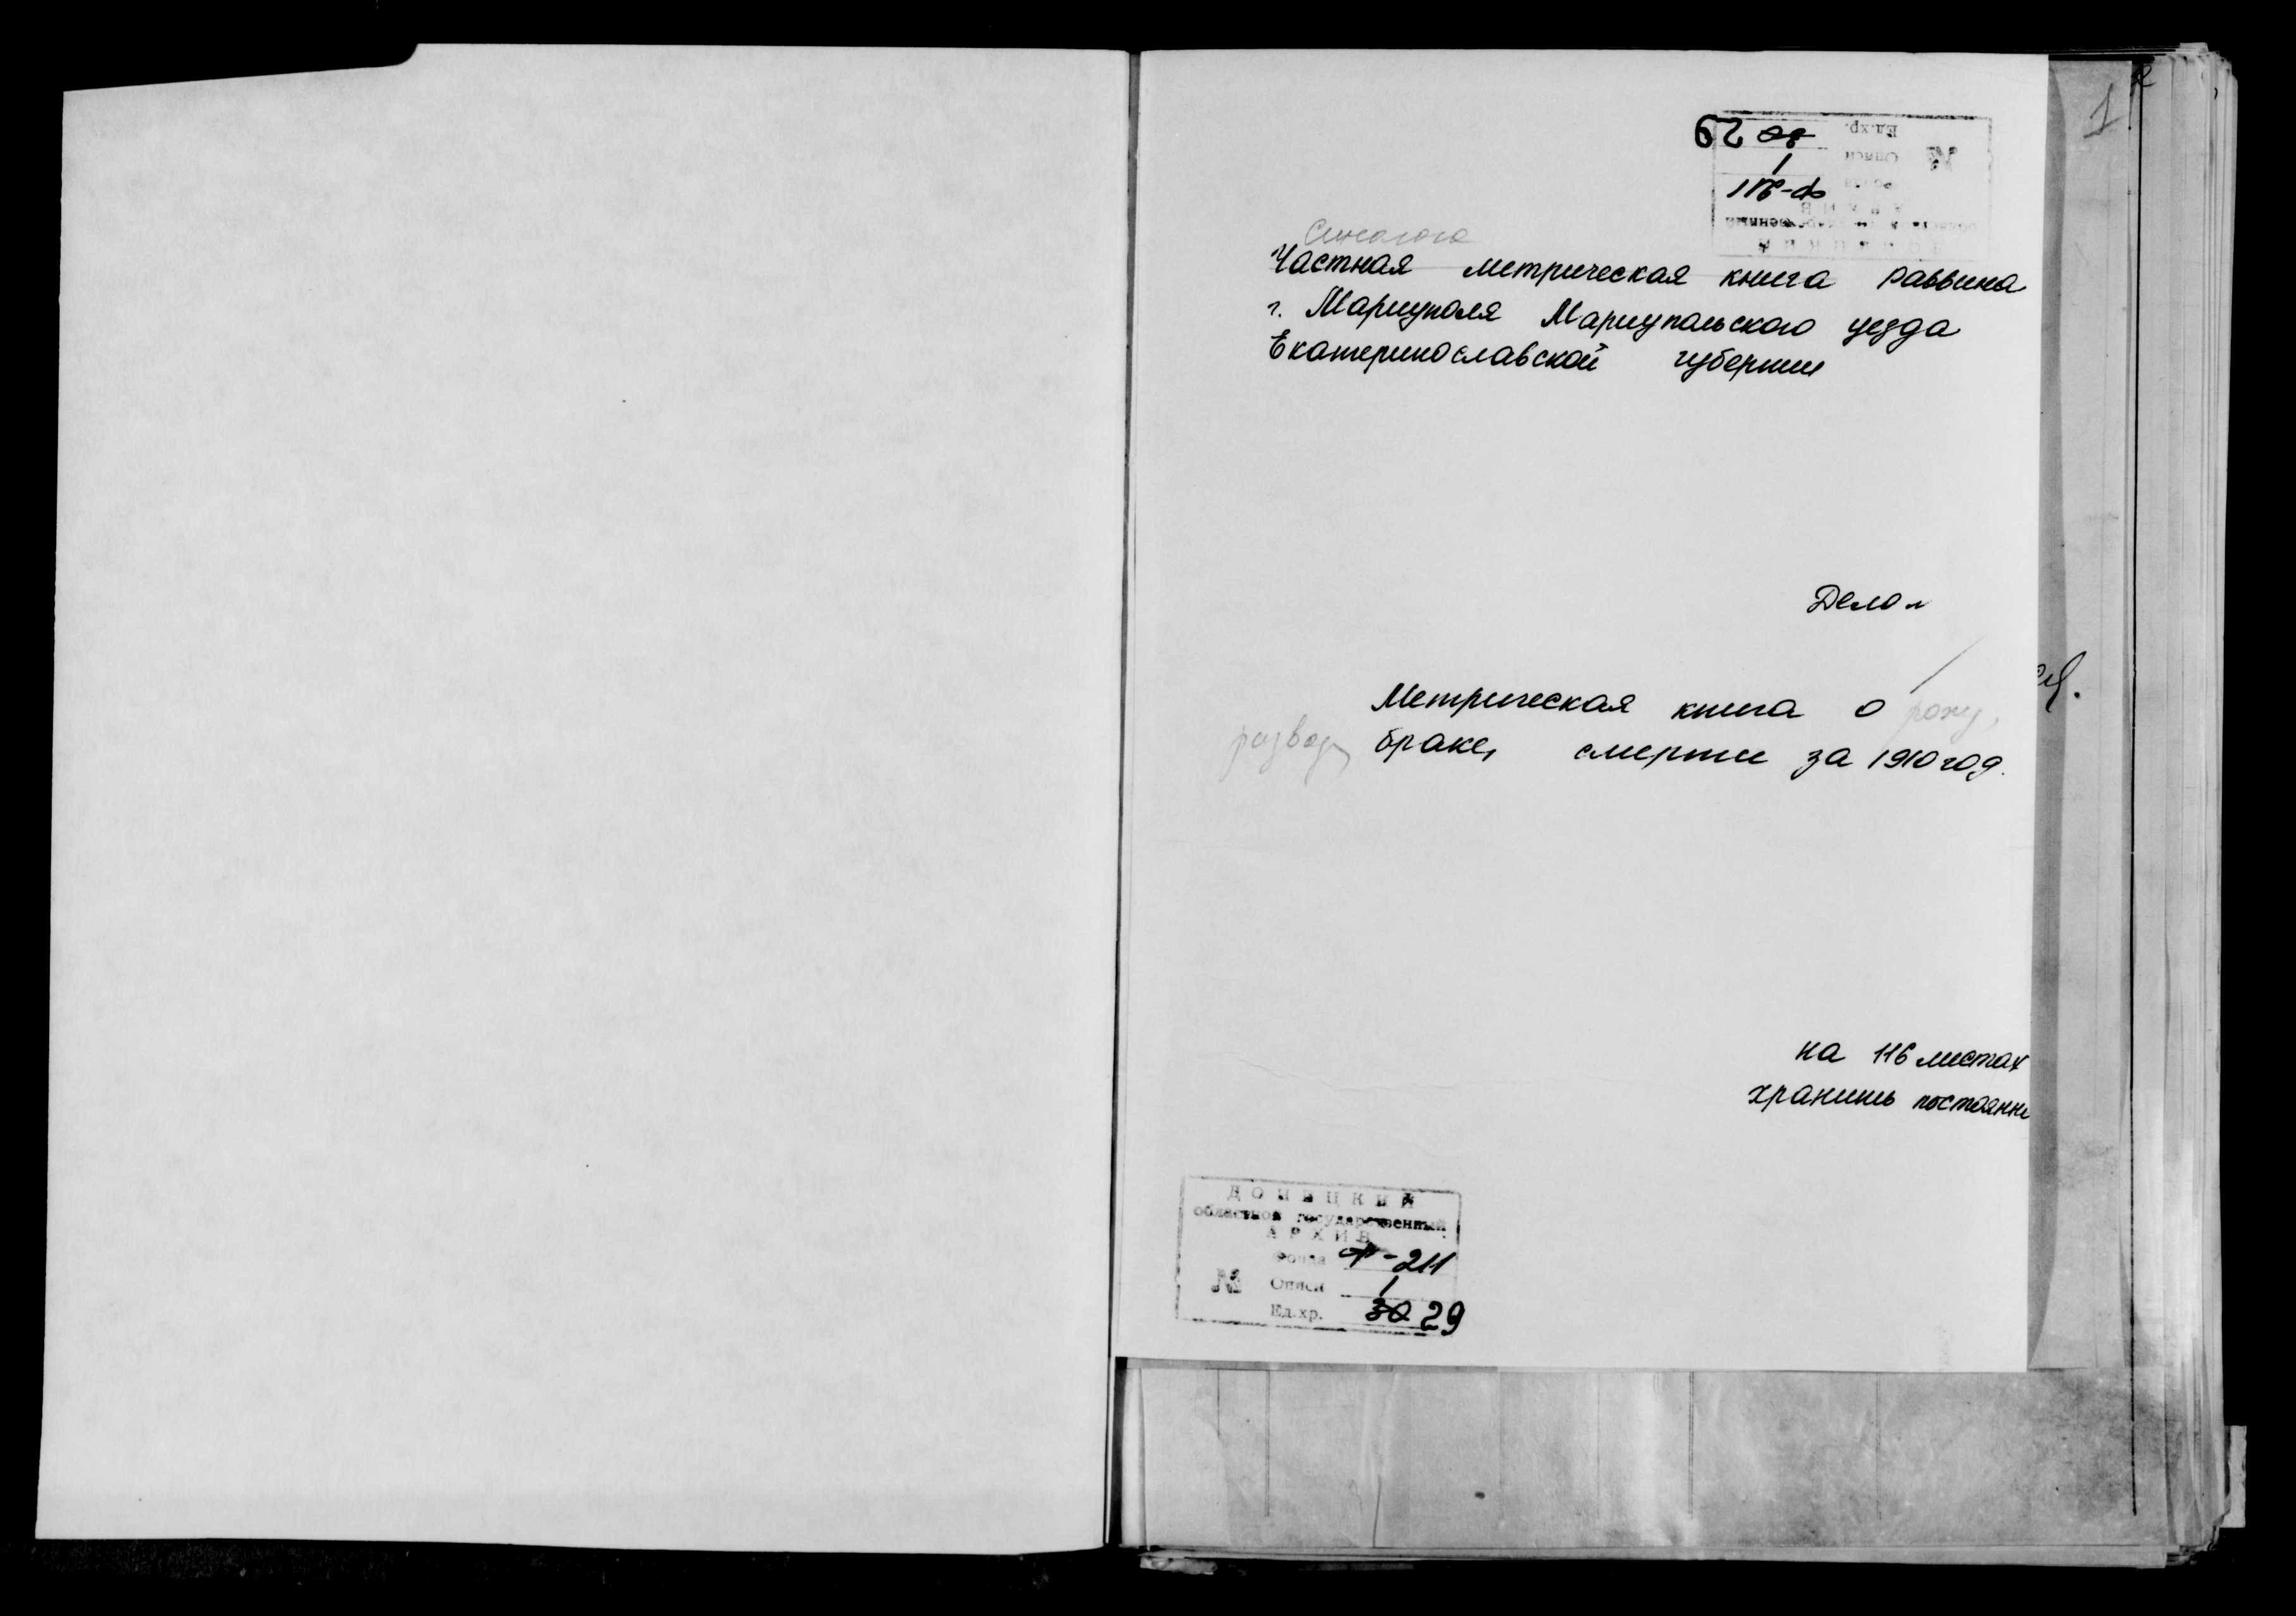 1
Ед.хр. 30 29
№ Описи 1
Фонда Ф-211
АРХИВ
областной государственный
ДОНЕЦКИЙ
Синагога
Частная метрическая книга раввина
г. Мариуполя Мариупольского уезда
Екатеринославской губернии
Дело
Метрическая книга о рожд,
развод, браке, смерти за 1910 год.
на 116 листах
хранить постоянн
ДОНЕЦКИЙ
областной государственный
АРХИВ
Фонда Ф-211
№ Описи 1
Ед.хр. 30 29